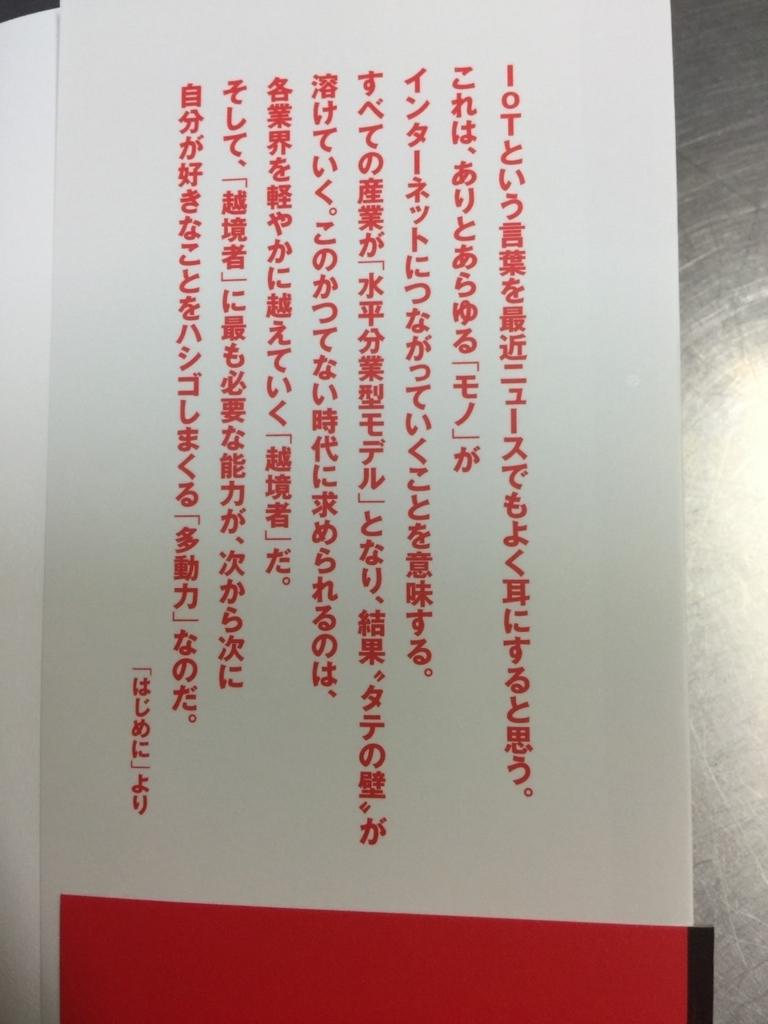 IoTという言葉を最近ニュースでもよく耳にすると思う。
これは、ありとあらゆる「モノ」が
インターネットにつながっていくことを意味する。
すべての産業が「水平分業型モデル」となり、結果〝タテの壁〟が
溶けていく。このかつてない時代に求められるのは、
各業界を軽やかに越えていく「越境者」だ。
そして、「越境者」に最も必要な能力が、次から次に
自分が好きなことをハシゴしまくる「多動力」なのだ。
「はじめに」より